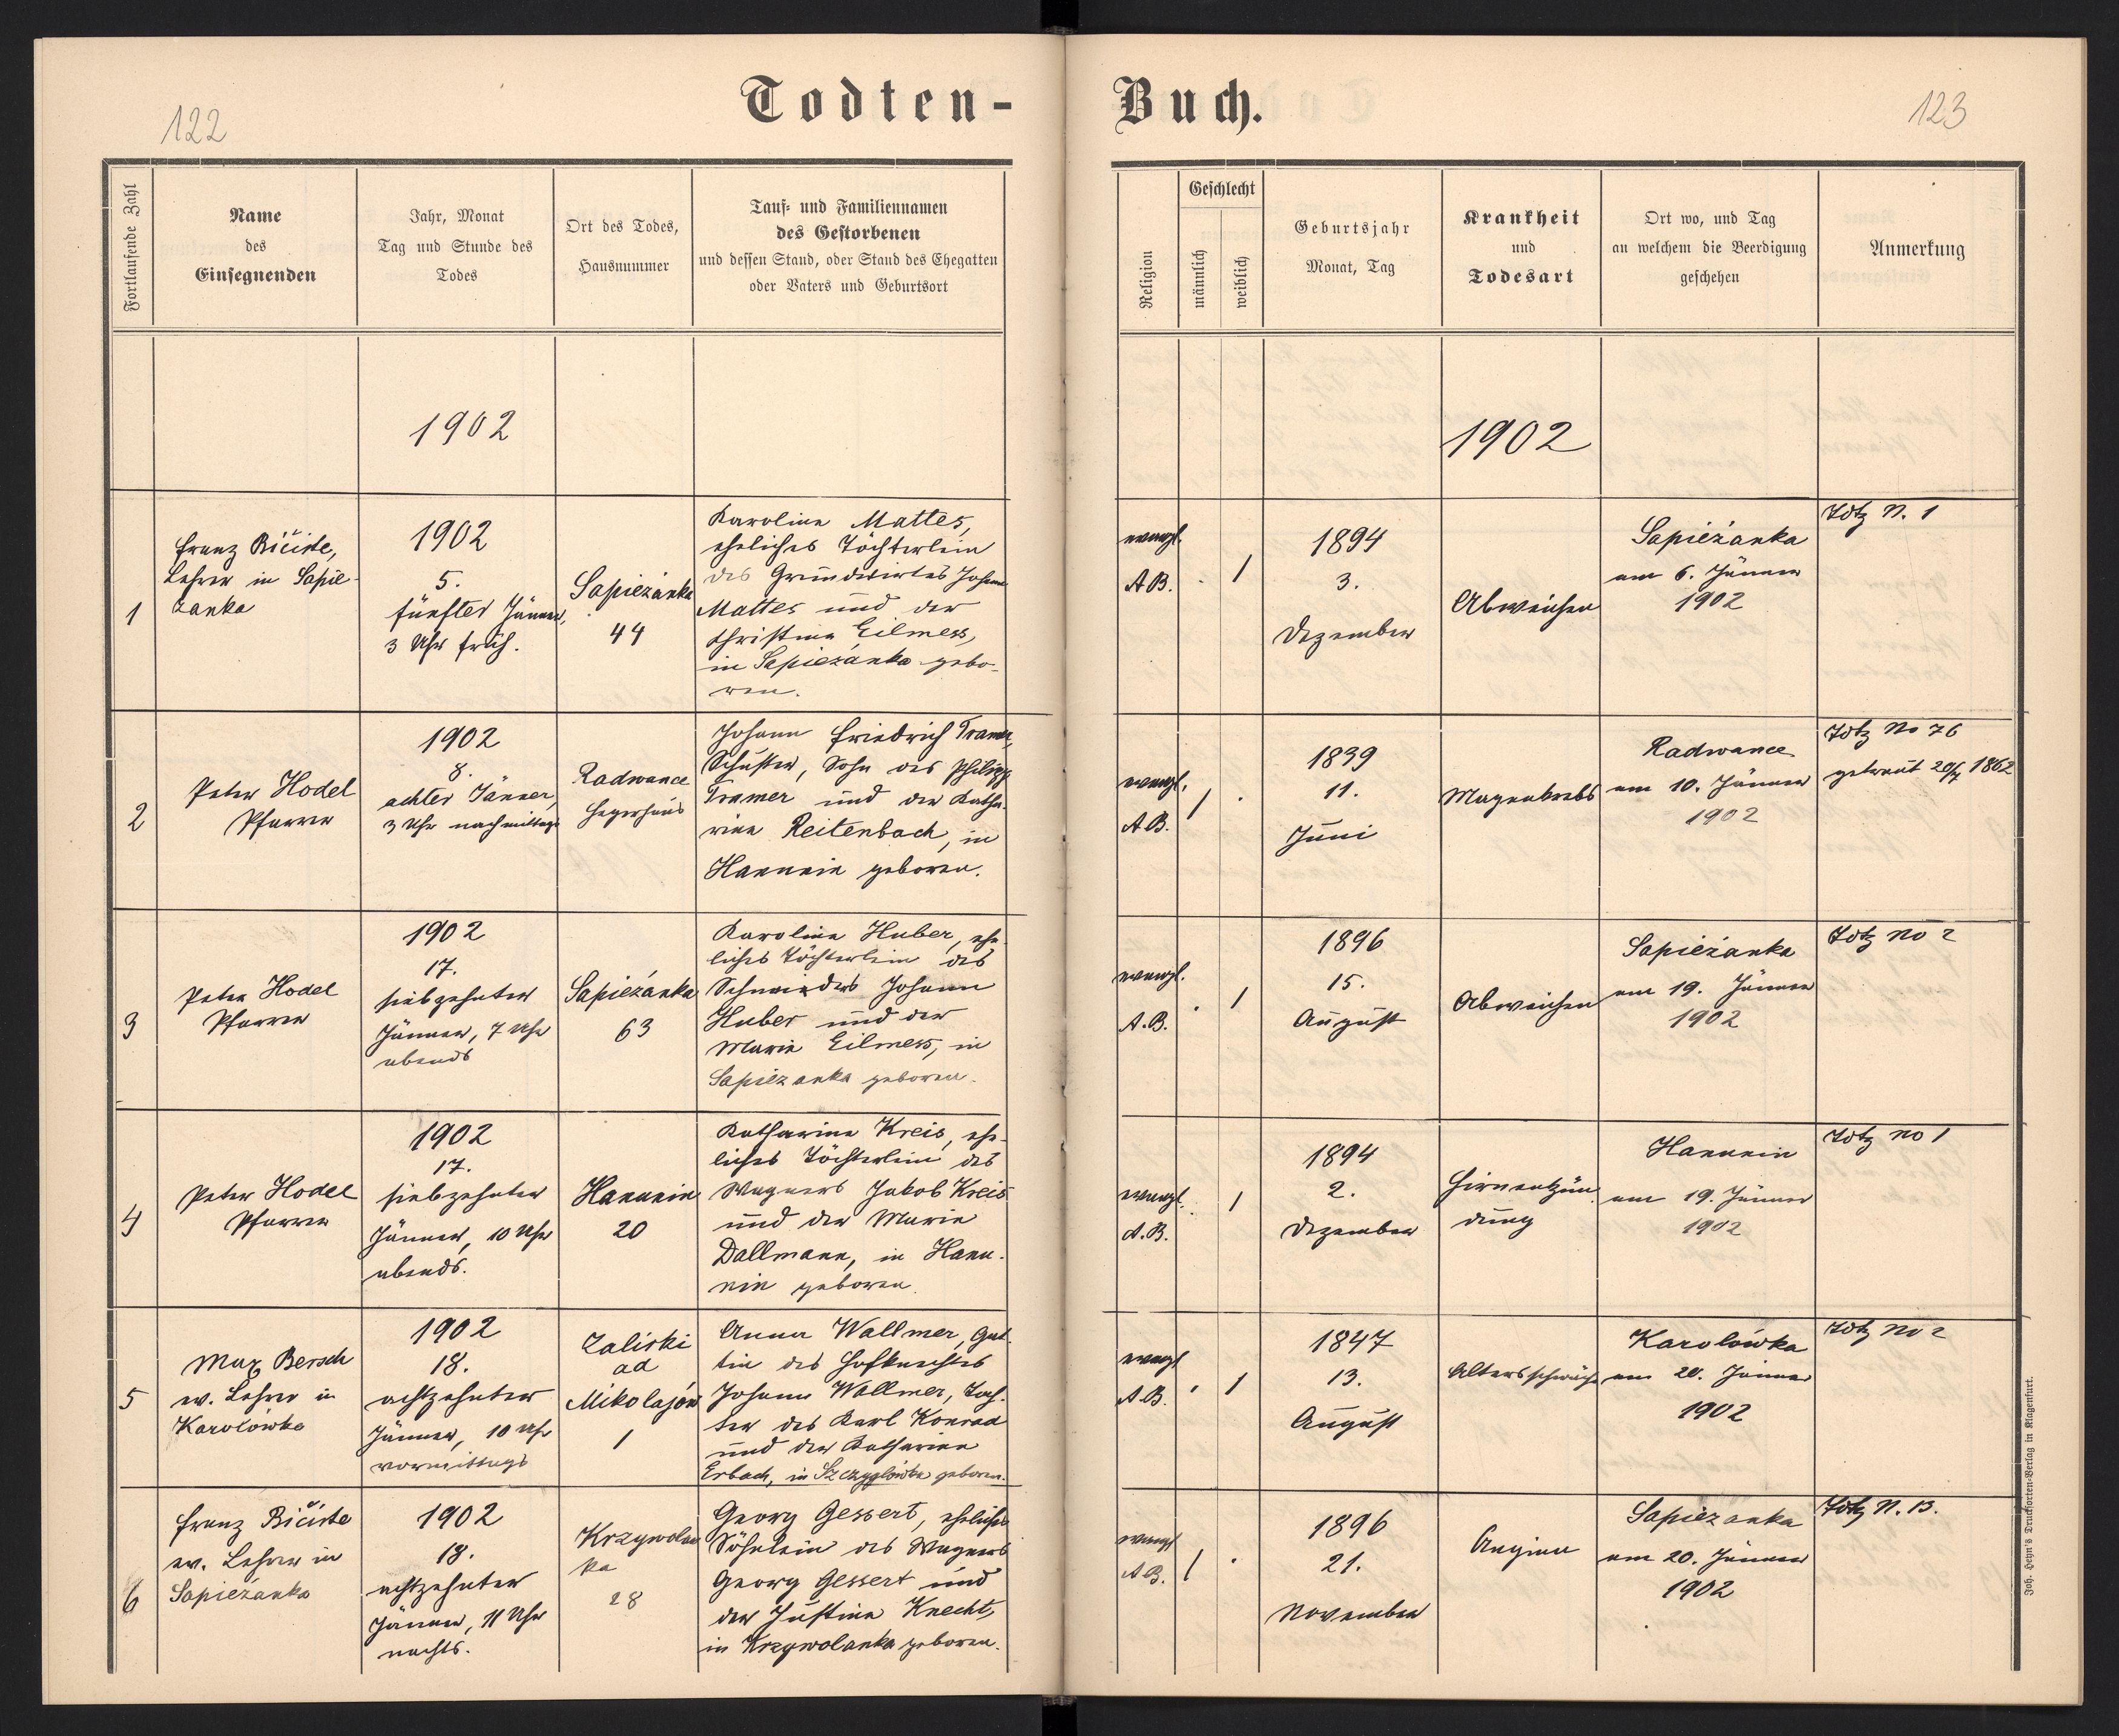 122
Todten-
Fortlaufende Zahl
Name
des
Einsegnenden
Jahr, Monat
Tag und Stunde des
Todes
Ort des Todes,
Hausnummer
Tauf- und Familiennamen
des Gestorbenen
und dessen Stand, oder Stand des Ehegatten
oder Vaters und Geburtsort
1902
1
Franz Bičiste,
Lehrer in Sapie-
zanka
1902
5.
fünfter Jänner,
3 Uhr früh.
Sapiezánka
44
Karolina Mattes,
eheliches Töchterlein
des Grundwirtes Johann
Mattes und der
Christina Eilmess,
in Sapiezánka gebo-
ren.
2
Peter Hodel
Pfarrer
1902
8.
achter Jänner,
3 Uhr nachmittags
Radwance
Hegerhaus
Johann Friedrich Tramer,
Schuster, Sohn des Philipp
Tramer und der Katha-
rina Reitenbach, in
Hanunin geboren.
3
Peter Hodel
Pfarrer
1902
17.
siebzehnter
Jänner, 7 Uhr
abends
Sapiezánka
63
Karolina Huber, ehe-
liches Töchterlein des
Schneiders Johann
Huber und der
Maria Eilmess, in
Sapiezanka geboren.
4
Peter Hodel
Pfarrer
1902
17.
siebzehnter
Jänner, 10 Uhr
abends.
Hanunin
20
Katharina Kreis, ehe-
liches Töchterlein des
Wagners Jakob Kreis
und der Maria
Dallmann, in Hanu-
nin geboren.
5
Max Bersch
ev. Lehrer in
Karolówka
1902
18.
achtzehnter
Jänner, 10 Uhr
vormittags
Zaliski
ad
Mikolajów
1
Anna Wallmer, Gat-
tin des Hofknechtes
Johann Wallmer, Toch-
ter des Karl Konrad
und der Katharina
Erbach, in Szczyglówka geboren.
6
Franz Bičiste
ev. Lehrer in
Sapiezánka
1902
18.
achtzehnter
Jänner, 11 Uhr
nachts.
Krzywolan
ka
28
Georg Gessert, eheliches
Söhnlein des Wagners
Georg Gessert und
der Justina Knecht,
in Krzywolanka geboren.
Buch.
123
Religion
Geschlecht
männlich
weiblich
Geburtsjahr
Monat, Tag
Krankheit
und
Todesart
Ort wo, und Tag
an welchem die Beerdigung
geschehen
Anmerkung
1902
evangl.
A.B.
. 1
1894
3.
Dezember
Abweichen
Sapieżanka
am 6. Jänner
1902
Totz N. 1
evangl.
A.B.
1 .
1839
11.
Juni
Magenkrebs
Radwance
am 10. Jänner
1902
Totz No 76
getraut 20/7 1862
evangl.
A.B.
. 1
1896
15.
August
Abweichen
Sapieżanka
am 19. Jänner
1902
Totz No 2
evangl.
A.B.
. 1
1894
2.
Dezember
Hirnentzün-
dung
Hanunin
am 19. Jänner
1902
Totz no 1
evangl
A.B.
. 1
1847
13.
August
Altersschwäche
Karolówka
am 20. Jänner
1902
Totz No 2
evangl
A.B.
1 .
1896
21.
November
Angina
Sapiezanka
am 20. Jänner
1902
Totz N. 13.
Joh. Heyn's Drucksorten-Verlag in Klagenfurt.